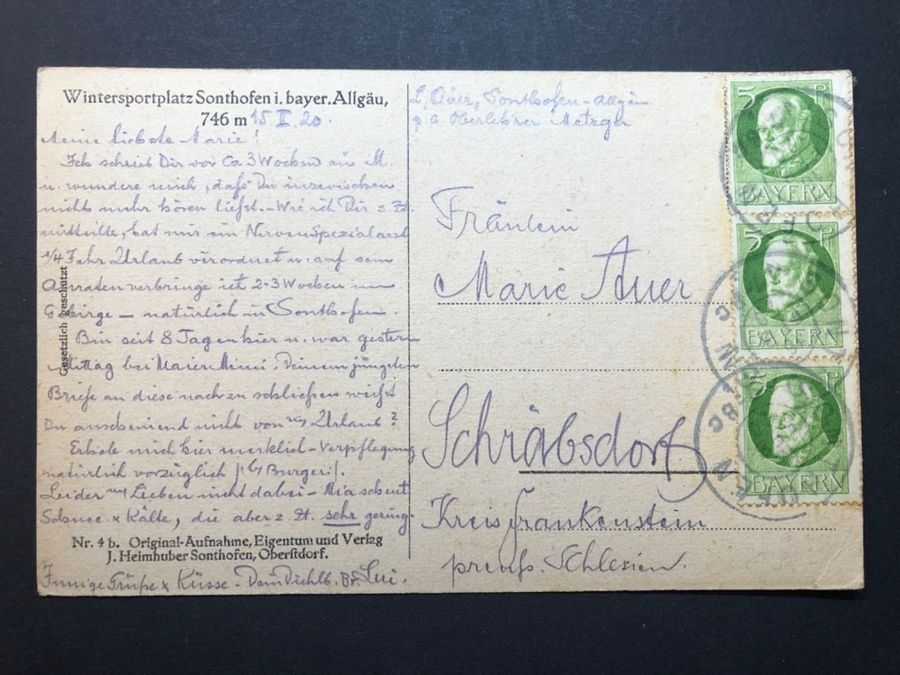 Wintersportplatz Sonthofen i. bayer. Allgäu,
746 m 15. II. 20.
Meine liebste Marie!
Ich schrieb Dir vor Ca 3 Wochen aus M.
u. wundere mich, daß Du inzwischen
nichts mehr hören ließt. - Wie ich Dir z. Zt.
mitteilte, hat mir ein Nervenspezialarzt
1/4 Jahr Urlaub verordnet u. auf sein
Anraten verbringe ich 2-3 Wochen im
Gebirge - natürlich in Sonthofen.
Bin seit 8 Tagen hier u. war gestern
Mittag bei Maier Mimi. Deinem jüngsten
Briefe an diese nach zu schließen weißt
Du anscheinend nicht von Urlaub?
Erhole mich hier merklich - Verpflegung
natürlich vorzüglich
Leider Lieben nicht dabei - Mia scheut
Schnee & Kälte, die aber z. Zt. sehr gering.
Nr. 4 b. Original-Aufnahme, Eigentum und Verlag
J. Heimhuber Sonthofen, Oberstdorf.
Innige Grüße & Küsse - Dein Br.
Gesetzlich geschützt
L. Auer, Sonthofen - Allgäu
p. a. Oberlehrer Metzger
Fräulein
Marie Auer
Schräbsdorf
Kreis Frankenstein
preuß. Schlesien.
5 P
BAYERN
5 P
BAYERN
5 P
BAYERN